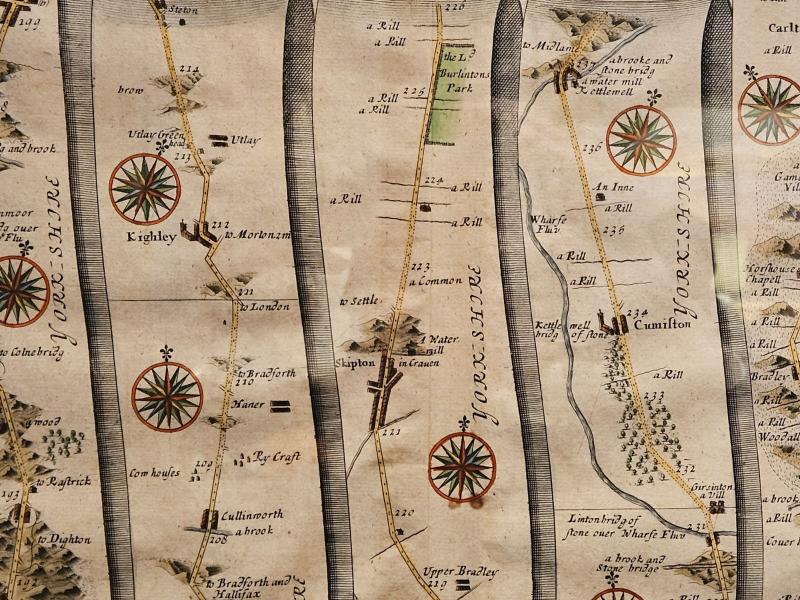 199
g and brook
g over
Flu
YORK-SHIRE
to Colnebridg
a wood
to Rastrick
193
to Dighton
192
Steton
214
brow
Utlay Green
head
Utlay
213
212
Kighley
to London
to Bradforth
210
Haner
Ry Craft
209
Com houses
Cullinworth
a brook
208
to Bradforth and
Hallifax
226
a Rill
a Rill
the Ld
Burlintons
Park
225
a Rill
a Rill
224
a Rill
a Rill
a Rill
223
a Common
to Settle
A Water
mill
Skipton
in Craven
YORK-SHIRE
221
220
Upper Bradley
219
to Midlam
a brooke and
stone bridg
a water mill
Kettlewell
236
An Inne
a Rill
Wharfe
Fluv
235
a Rill
a Rill
YORK-SHIRE
234
Kettlewell
bridg of stone
Cumiston
a Rill
233
232
Girsinton
a Vill
Linton bridg of
stone over Wharfe Fluv
231
a brook and
Stone bridge
a Rill
Horshouse
Chapell
a Rill
a Rill
Bradley
a Rill
a Rill
a brook
a Rill